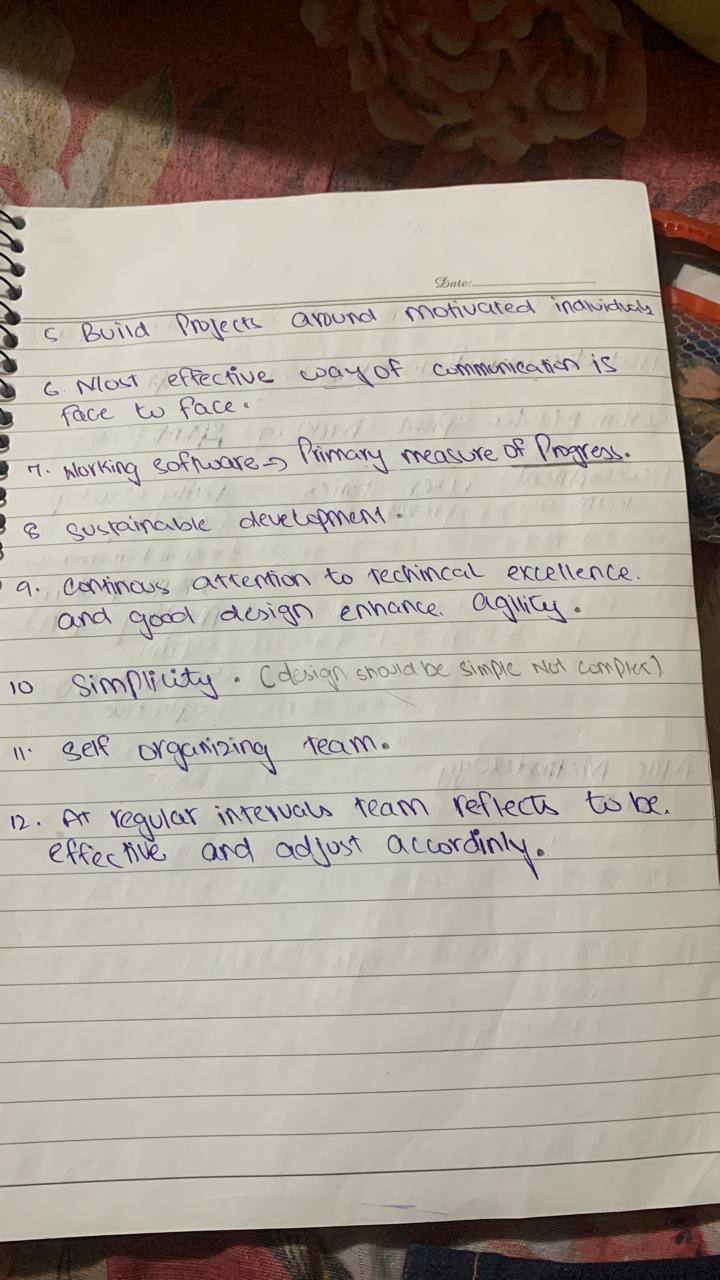 Date:
5 Build Projects around motivated individuals
6. Most effective way of communication is
face to face.
7. Working software → Primary measure of Progress.
8 Sustainable development.
9. Continous attention to techincal excellence.
and good design enhance. agility.
10 Simplicity. (design should be simple Not complex)
11. Self organizing team.
12. At regular intervals team reflects to be.
effective and adjust accordinly.